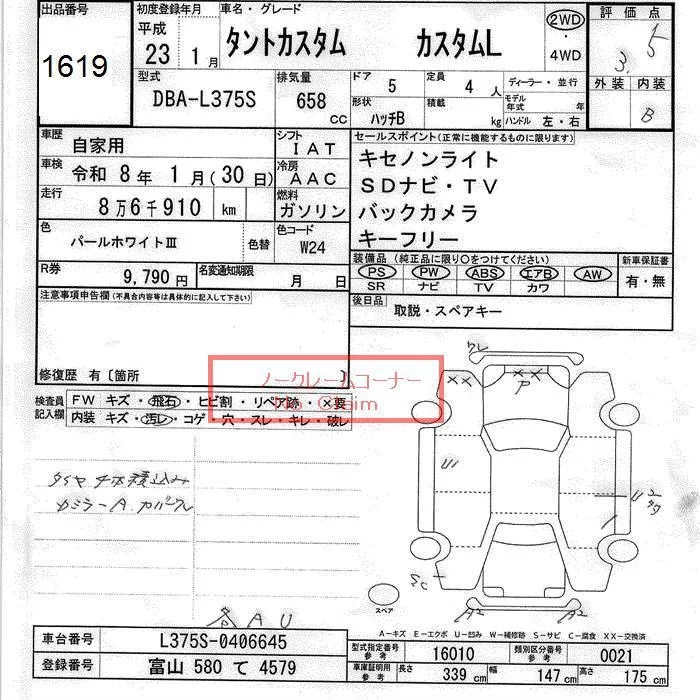 出品番号
1619
初度登録年月
平成
23 1月
車名・グレード
タントカスタム カスタムL
2WD
・
4WD
評価点
3.5
外装 内装
B
型式
DBA-L375S
排気量
658
CC
ドア
5
定員
4 人
形状
ハッチB
積載
kg
ディーラー・並行
モデル年式 年
ハンドル 左・右
車歴
自家用
シフト
IAT
車検
令和 8年 1月(30日)
冷房
AAC
走行
8万6千910 km
燃料
ガソリン
色
パールホワイトⅢ
色替
色コード
W24
R券
9,790円
名変通知期限
月 日
セールスポイント(正常に機能するものに限ります)
キセノンライト
SDナビ・TV
バックカメラ
キーフリー
装備品(純正品に限り○をつけてください)
PS PW ABS エアB AW
SR ナビ TV カワ
新車保証書
有・無
後日品
取説・スペアキー
注意事項申告欄(不具合内容等は具体的に記入して下さい)
修復歴 有〔箇所 〕
ノークレームコーナー
No Claim
検査員
記入欄
FW キズ・飛石・ヒビ割・リペア跡・×要
内装 キズ・汚レ・コゲ・穴・スレ・キレ・破レ
タイヤ4本積込み
各AU
XX
XX
ア
U1
U2
A2
A2
スペア
A-キズ E-エクボ U-凹み W-補修跡 S-サビ C-腐食 XX-交換済
車台番号
L375S-0406645
登録番号
富山 580 て 4579
型式指定番号
参考
16010
類別区分番号
参考
0021
車庫証明用
参考
長さ 339 cm
幅 147 cm
高さ 175 cm